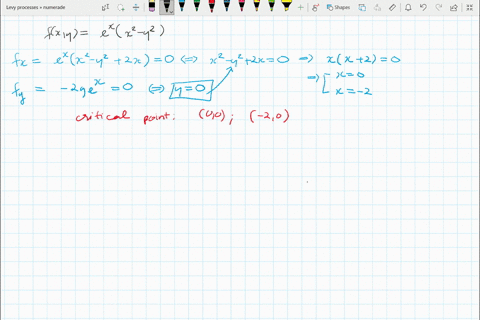 Levy processes + numerade
Shapes
f(x,y) = e^x (x²-y²)
fx = e^x (x²-y²+2x) = 0 ⇔ x²-y²+2x=0 ⇒ x(x+2)=0
⇒ [ x=0
fy = -2ye^x = 0 ⇔ y=0 x=-2
critical point: (0,0); (-2,0)